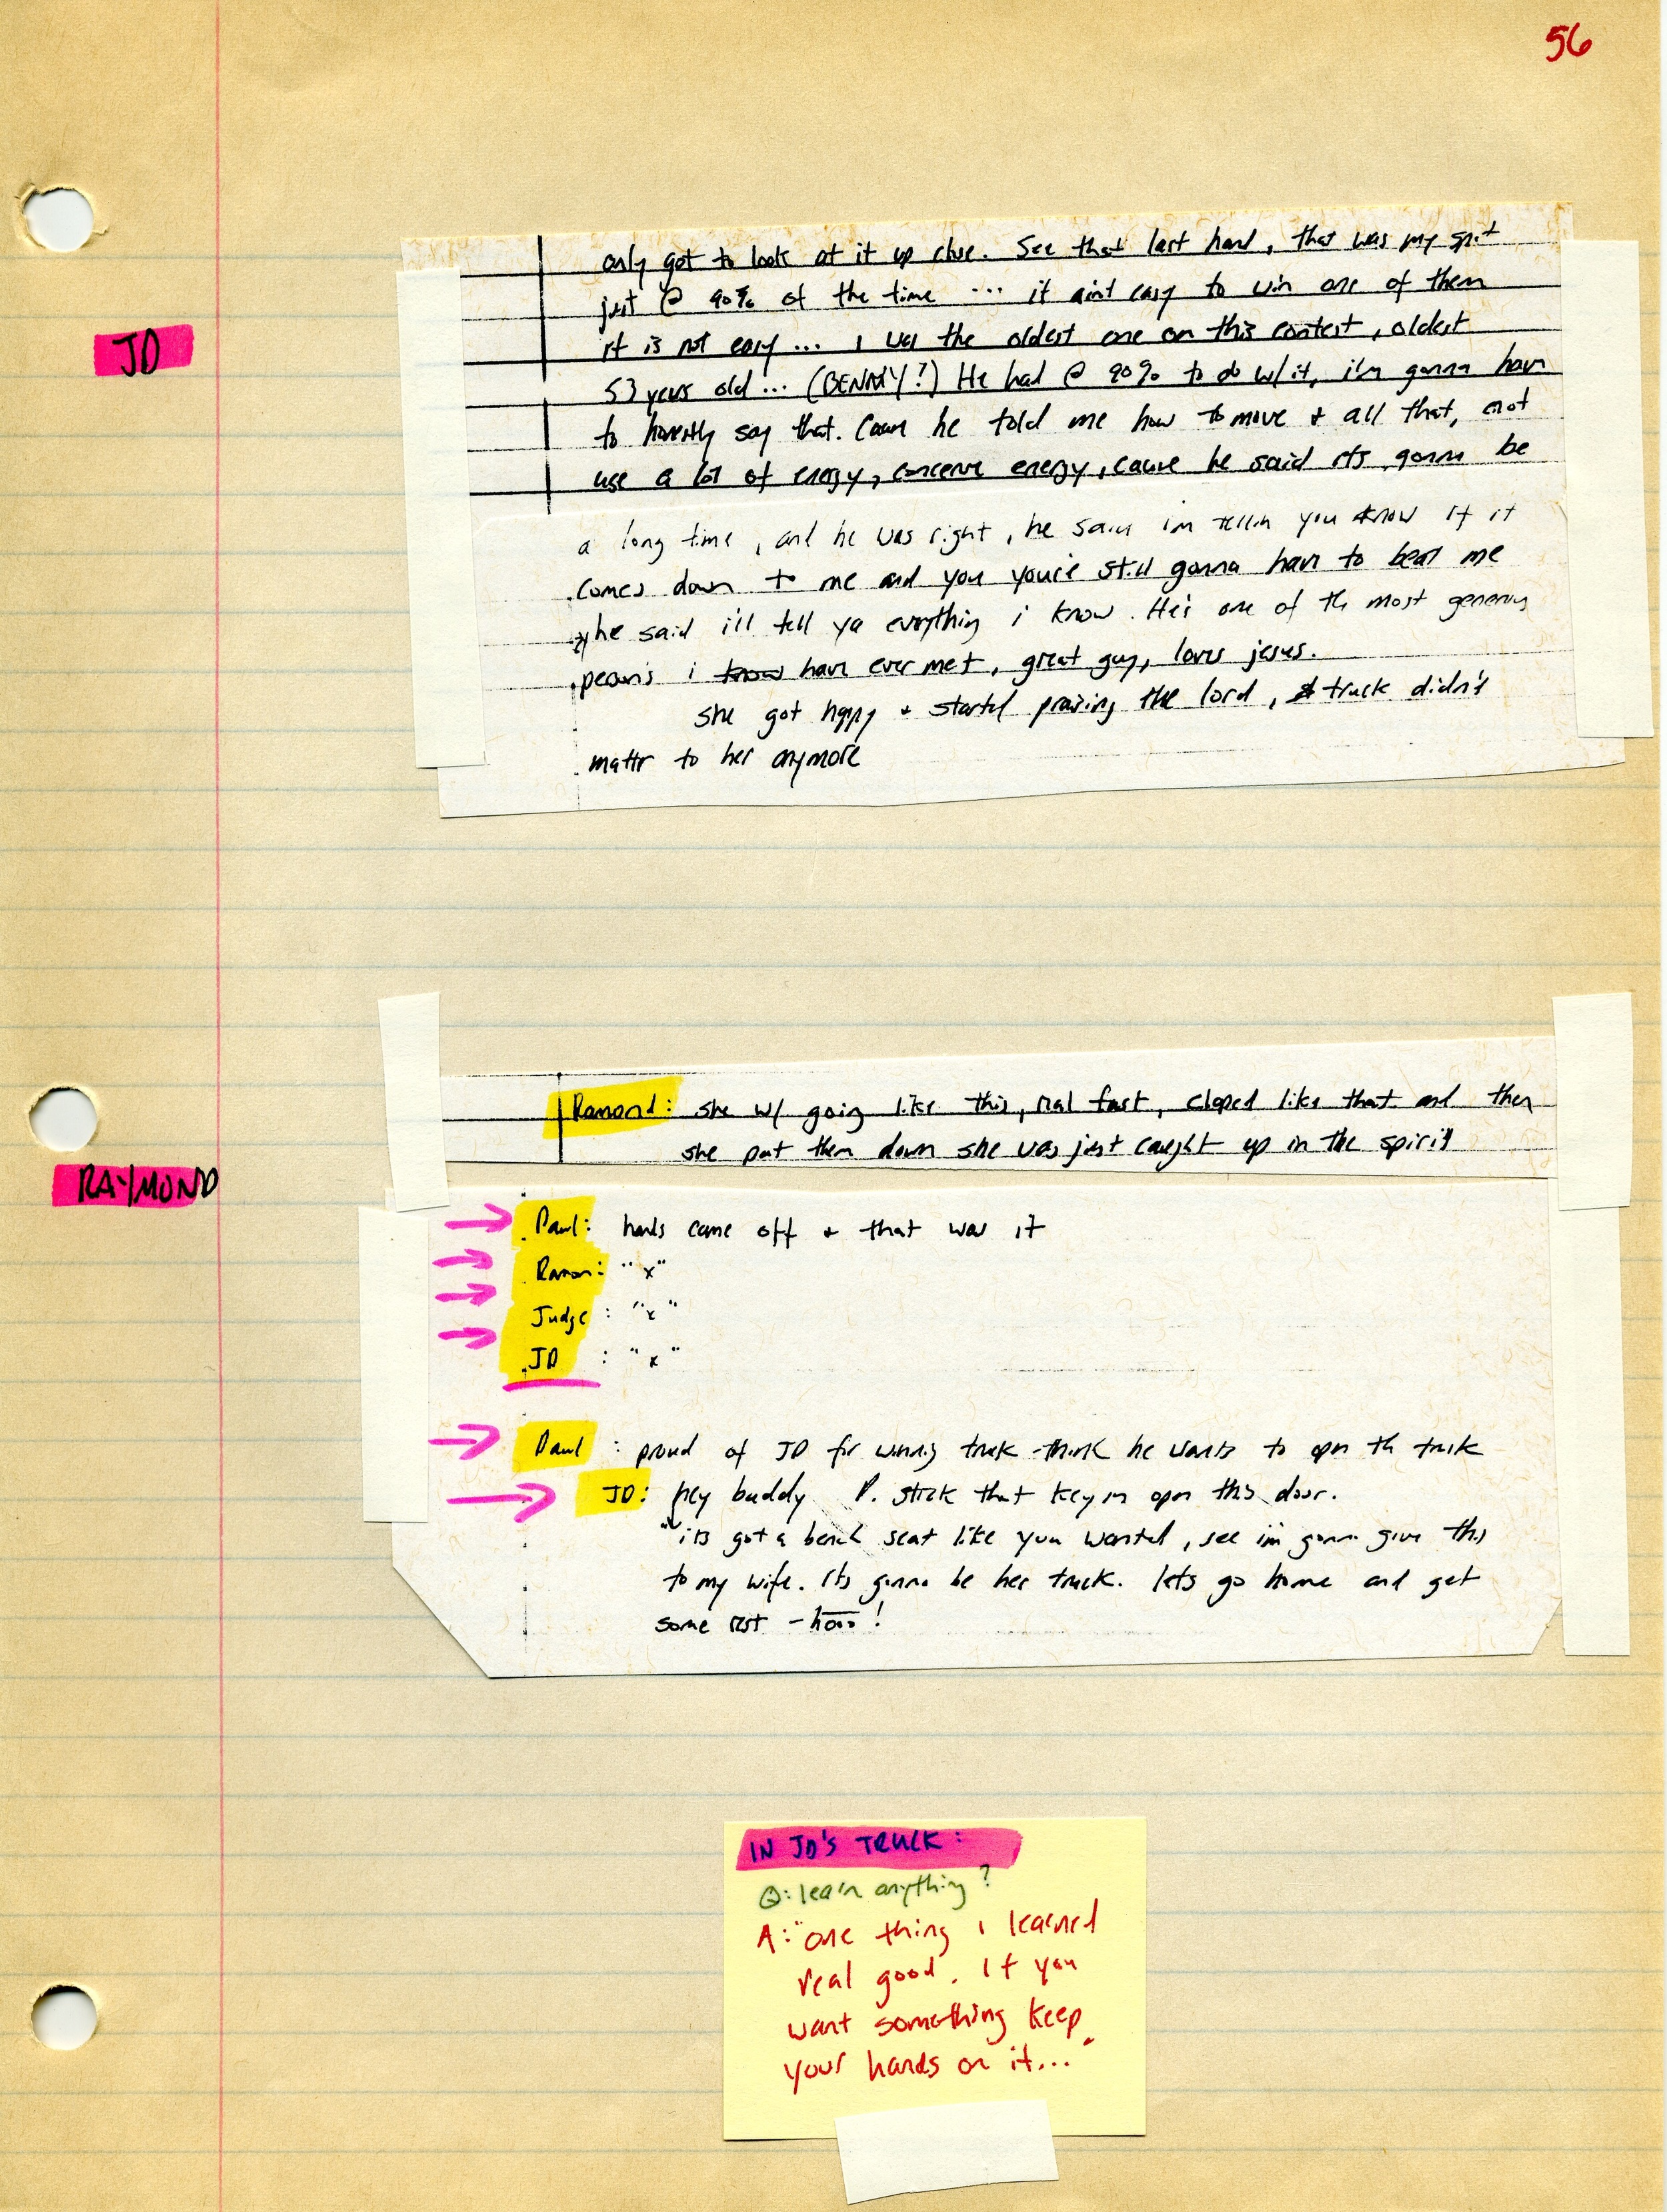 56
JD
only got to look at it up close. See that last hand, that was my spot
just @ 90% of the time ... it aint easy to win one of them
it is not easy... I was the oldest one on this contest, oldest
53 years old... (BENNY!) He had @ 90% to do w/it, i'm gonna have
to honestly say that. Cause he told me how to move + all that, not
use a lot of energy, conserve energy, cause he said its gonna be
a long time, and he was right, he said im tellin you know if it
comes down to me and you you're still gonna have to beat me
he said i'll tell ya everything i know. He's one of the most generous
persons i know have ever met, great guy, loves jesus.
she got happy + started praising the lord, truck didn't
mattr to her anymore
RAYMOND
Ramond: she w/ going like this, real fast, claped like that and then
she put them down she was just caught up in the spirit
Paul: hands came off + that was it
Ramon: "x"
Judge: "x"
JD: "x"
Paul: proud of JD for winning truck - think he wants to open th truck
JD: hey buddy P. stick that key in open this door.
"its got a bench seat like you wanted, see i'm gonna give this
to my wife. Its gonna be her truck. lets go home and get
some rest - !
IN JD'S TRUCK:
Q: learn anything?
A: "one thing i learned
real good. If you
want something keep
your hands on it..."